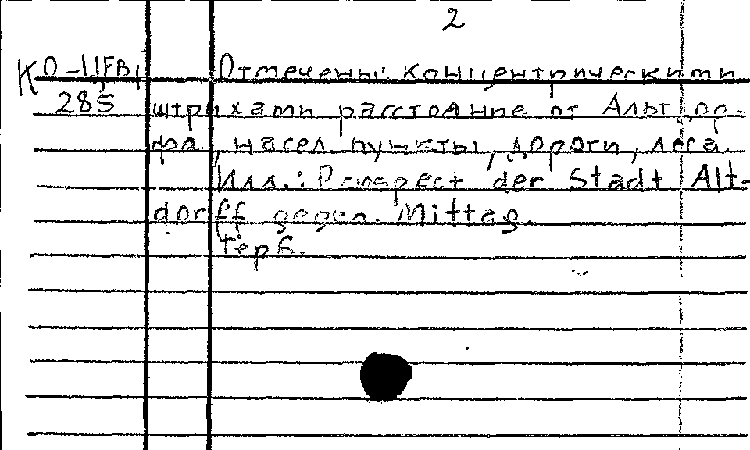 2
Отмечены концентрическими
285 штрихами расстояние от Альтдор-
фа, насел. пункты, дороги, леса.
Илл.: Prospect der Stadt Alt-
dorff gegen Mittag.